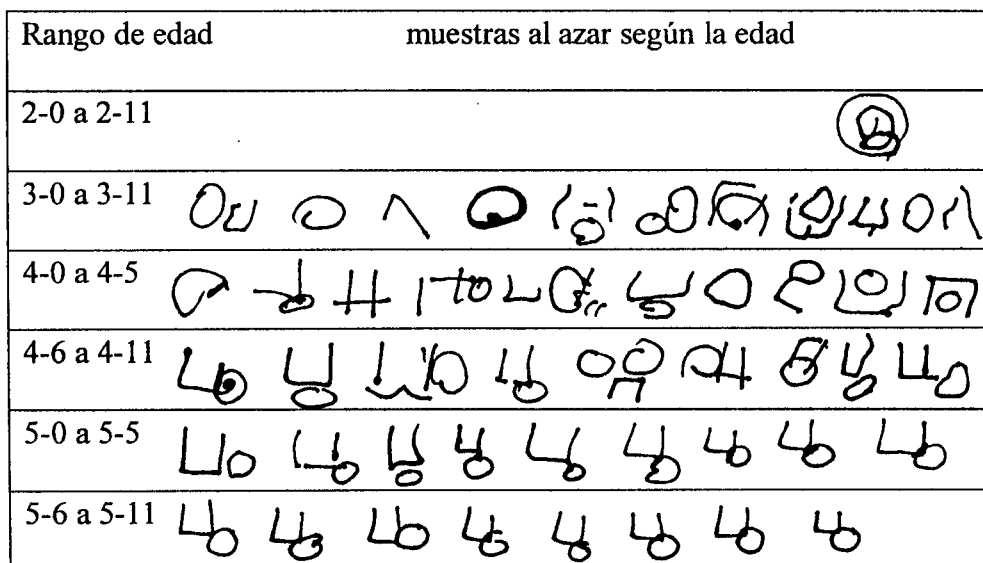 Rango de edad muestras al azar según la edad
2-0 a 2-11
3-0 a 3-11
4-0 a 4-5
4-6 a 4-11
5-0 a 5-5
5-6 a 5-11